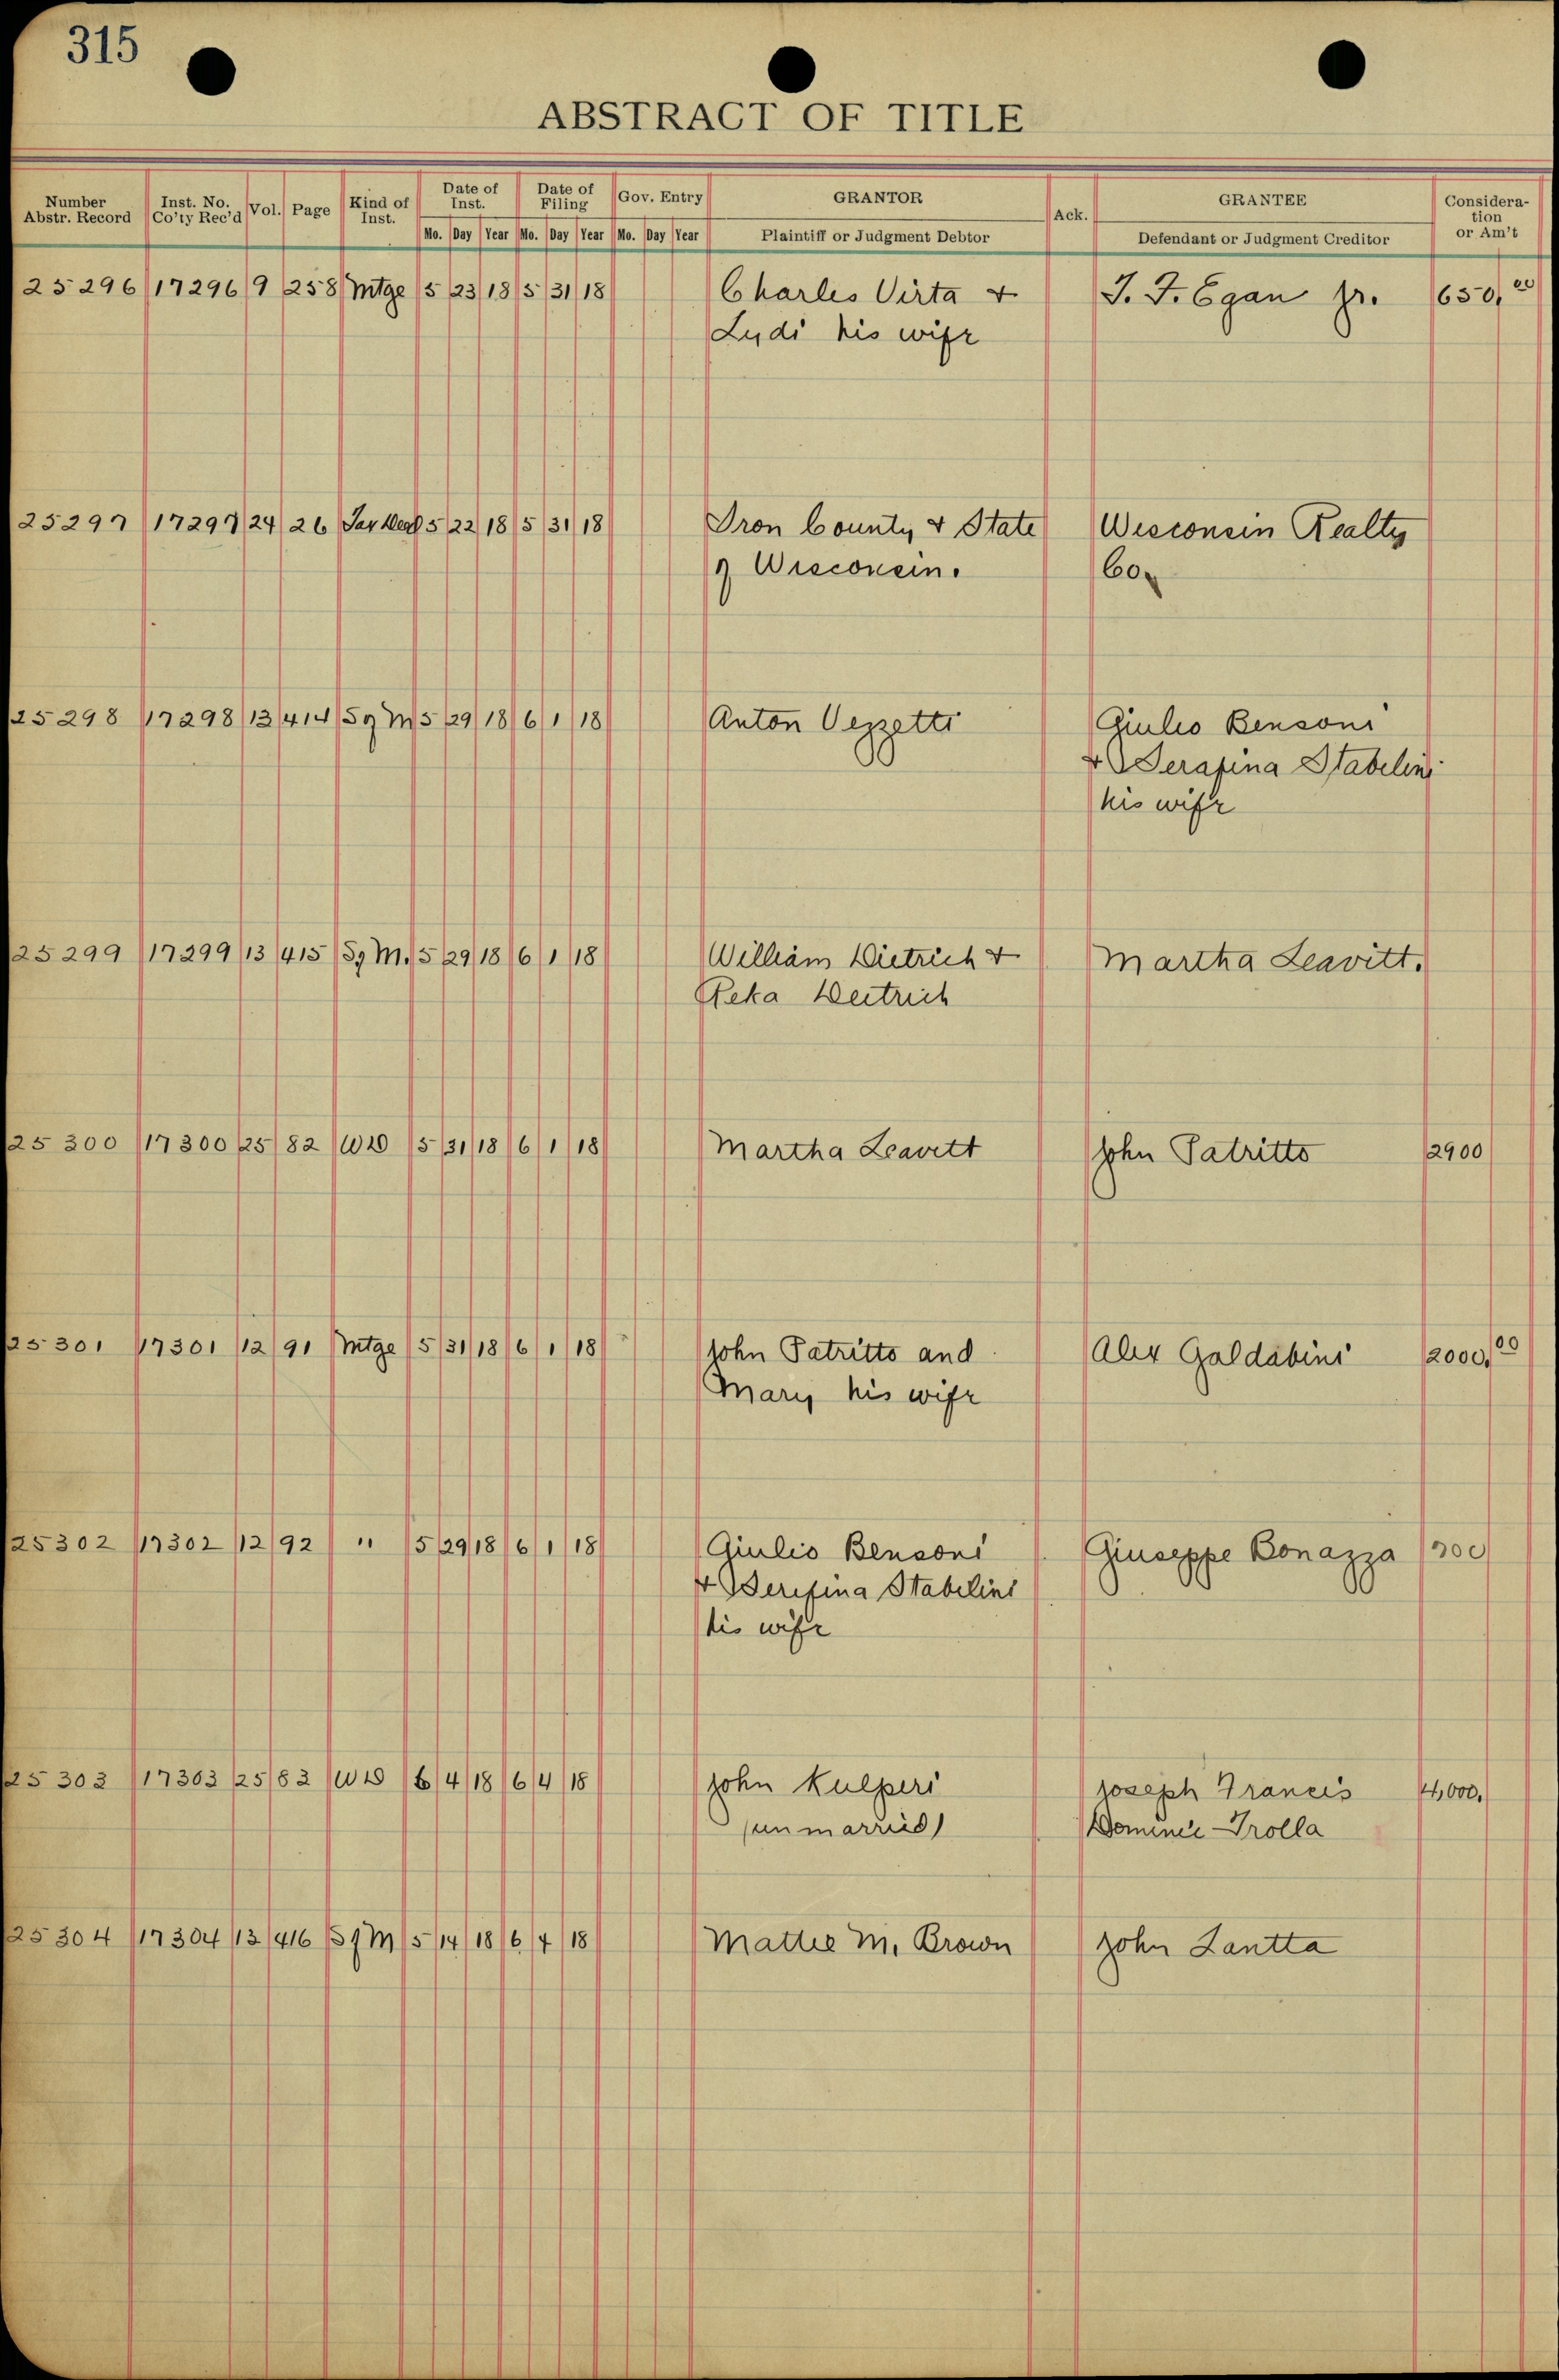 315
ABSTRACT OF TITLE
Number Abstr. Record Inst. No. Co'ty Rec'd Vol. Page Kind of Inst. Date of Inst. Date of Filing Gov. Entry GRANTOR Ack. GRANTEE Consideration or Am't
Mo. Day Year Mo. Day Year Mo. Day Year Plaintiff or Judgment Debtor Defendant or Judgment Creditor
25296 17296 9 258 Mtge 5 23 18 5 31 18 Charles Virta & J. F. Egan Jr. 650.00
Lydi his wife
25297 17297 24 26 Tax Deed 5 22 18 5 31 18 Iron County & State Wisconsin Realty
of Wisconsin. Co.
25298 17298 13 414 S of M 5 29 18 6 1 18 Anton Vezzetti Giulio Bensoni
& Serafina Stabelini
his wife
25299 17299 13 415 S of M. 5 29 18 6 1 18 William Dietrich & Martha Leavitt.
Reka Deitrich
25300 17300 25 82 WD 5 31 18 6 1 18 Martha Leavitt John Patritto 2900
25301 17301 12 91 Mtge 5 31 18 6 1 18 John Patritto and Alex Galdabini 2000.00
Mary his wife
25302 17302 12 92 " 5 29 18 6 1 18 Giulio Bensoni Giuseppe Bonazza 700
& Serifina Stabelini
his wife
25303 17303 25 83 WD 6 4 18 6 4 18 John Kulperi Joseph Francis 4,000.
(unmarried) Trolla
25304 17304 13 416 S of M 5 14 18 6 4 18 Mattie M. Brown John Lantta